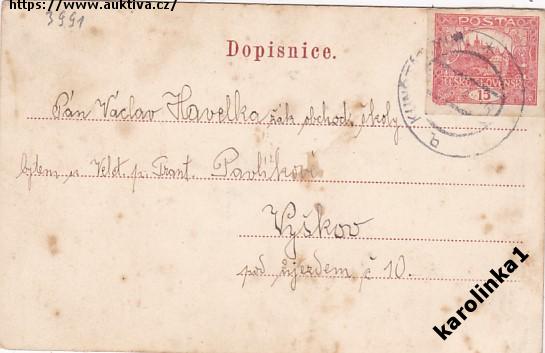 https://www.auktiva.cz/
3991
Dopisnice.
POSTA
ČESKOSLOVENSKÁ
15
Pán Václav Havelka žák obchod. školy
bytem u Velet. p. Frant. Pavlíkové
Vyškov
pod újezdem č 10.
karolinka1